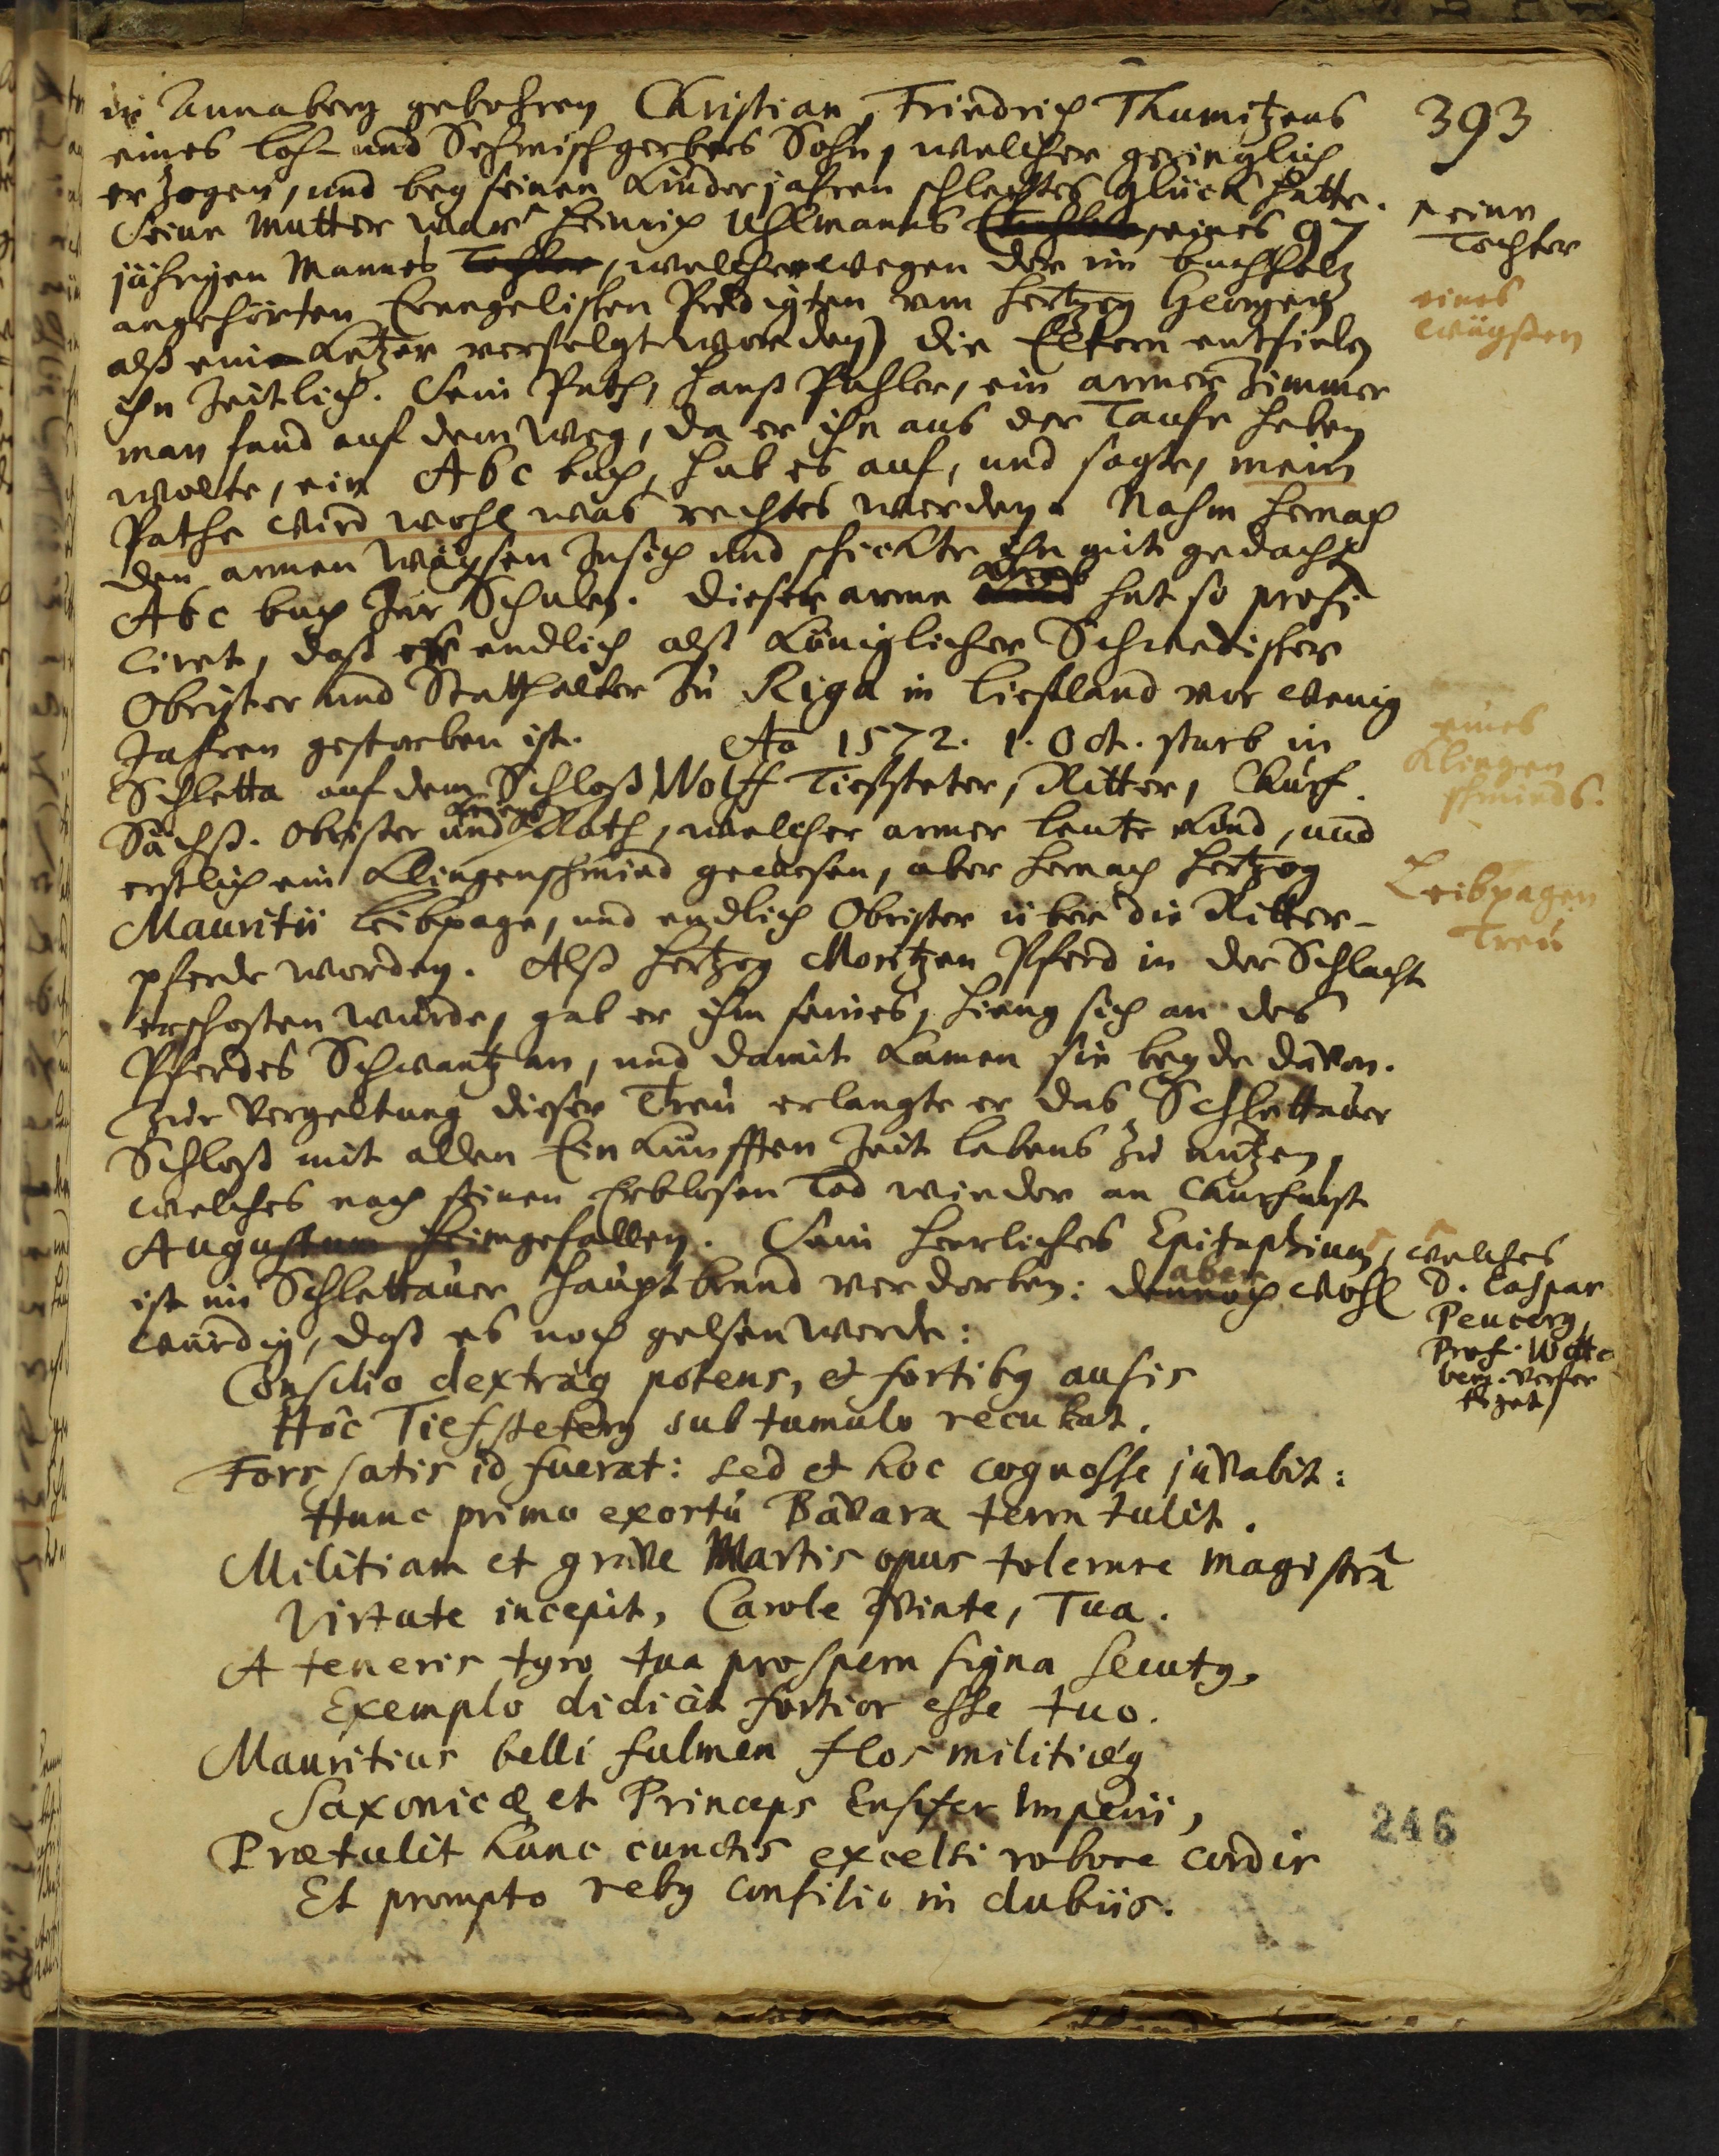 393
in Annaberg gebohren Christian Friedrich Thumitzens
eines Loh- und Sehmischgerbers Sohn, welcher geringlich
erzogen, und bey seinen Kinderjahren schlechtes Glück hatte.
Seine Mutter war Heinrich Uhlmanns eines 97
jährigen Mannes Tochter, welcher wegen der im Buchholtz
angehörten Evangelischen Predigten von Hertzog Georgen
alß ein Ketzer verfolgt worden) die Eltern entfielen
ihn zeitlich. Sein Path, Hanß Puhler, ein armer Zimmer
man fand auf dem Weg, da er ihn aus der Taufe heben
wolte, ein Abc buch, hub es auf, und sagte, mein
Pathe wird wohl was rechtes werden. Nahm hernach
den armen Wäysen zu sich und schickte ihn mit gedacht
Abc buch zur Schulen. Dieser arme hat so profi
ciret, daß er endlich alß Königlicher Schwedischer
Obrister und Statthalter zu Riga in Liefland vor wenig
Jahren gestorben ist. Ao 1572. 1. Oct. starb in
Schletta auf dem Schloß Wolff Tiefsteter, Ritter, Churf.
Sächß. Obrister und Kriegs Rath, welcher armer Leute Kind, und
erstlich ein Klingenschmied gewesen, aber hernach Hertzog
Mauritii Leibpage, und endlich Obrister über die Ritter-
pferde worden. Alß Hertzog Moritzen Pferd in der Schlacht
erschoßen wurde, gab er ihm seines, hieng sich an des
Pferdes Schwantz an, und damit kamen sie beyde davon.
Zur Vergeltung dieser Treu erlangte er das Schlettauer
Schloß mit allen Einkünfften Zeit Lebens zu nutzen,
welches nach seinen Erblosen Tod wieder an Churfürst
Augustum heimgefallen. Sein herrliches Epitaphium,
ist im Schlettauer Hauptbrand verdorben: dennoch aber wohl
würdig, daß es noch gelesen werde:
Consilio dextraq potens, et fortibq ausis
Hôc Tiefsteterq sub tumulo recubat.
Fors satis id fuerat: sed et hoc cognosse juvabit:
Hunc primo exortu Bavara terra tulit.
Militiam et grave Martis opus tolerare magistrâ
Virtute incepit, Carole Qvinte, Tua.
A teneris tyro tua prospera signa secutq,
Exemplo didicit fortior esse tuo.
Mauritius belli fulmen flos militiæq
Saxonicæ et Princeps Ensifer Imperii,
Prætulit hunc cunctis excelsi robore cordis
Et prompto rebq consilio in dubiis.
eine
Tochter
eines
Wäysen
eines
Klingen
schmieds.
Leibpagen
Treü
welches
D. Caspar
Peucerq,
Prof. Witte
berg. verfer
tiget
246